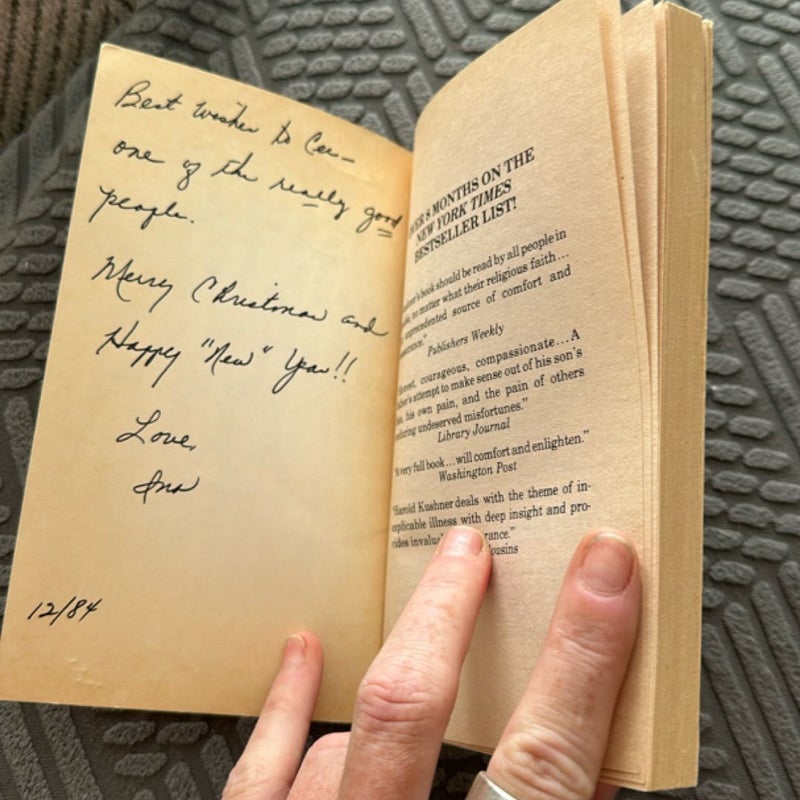 Best wishes to Cee—
one of the really good
people.
Merry Christmas and
Happy "New" Year!!
Love,
Ina
12/84
8 MONTHS ON THE
NEW YORK TIMES
BESTSELLER LIST!
book should be read by all people in
no matter what their religious faith...
unprecedented source of comfort and
Publishers Weekly
courageous, compassionate...A
attempt to make sense out of his son's
his own pain, and the pain of others
undeserved misfortunes."
Library Journal
"A very full book...will comfort and enlighten."
Washington Post
"Harold Kushner deals with the theme of in-
explicable illness with deep insight and pro-
vides